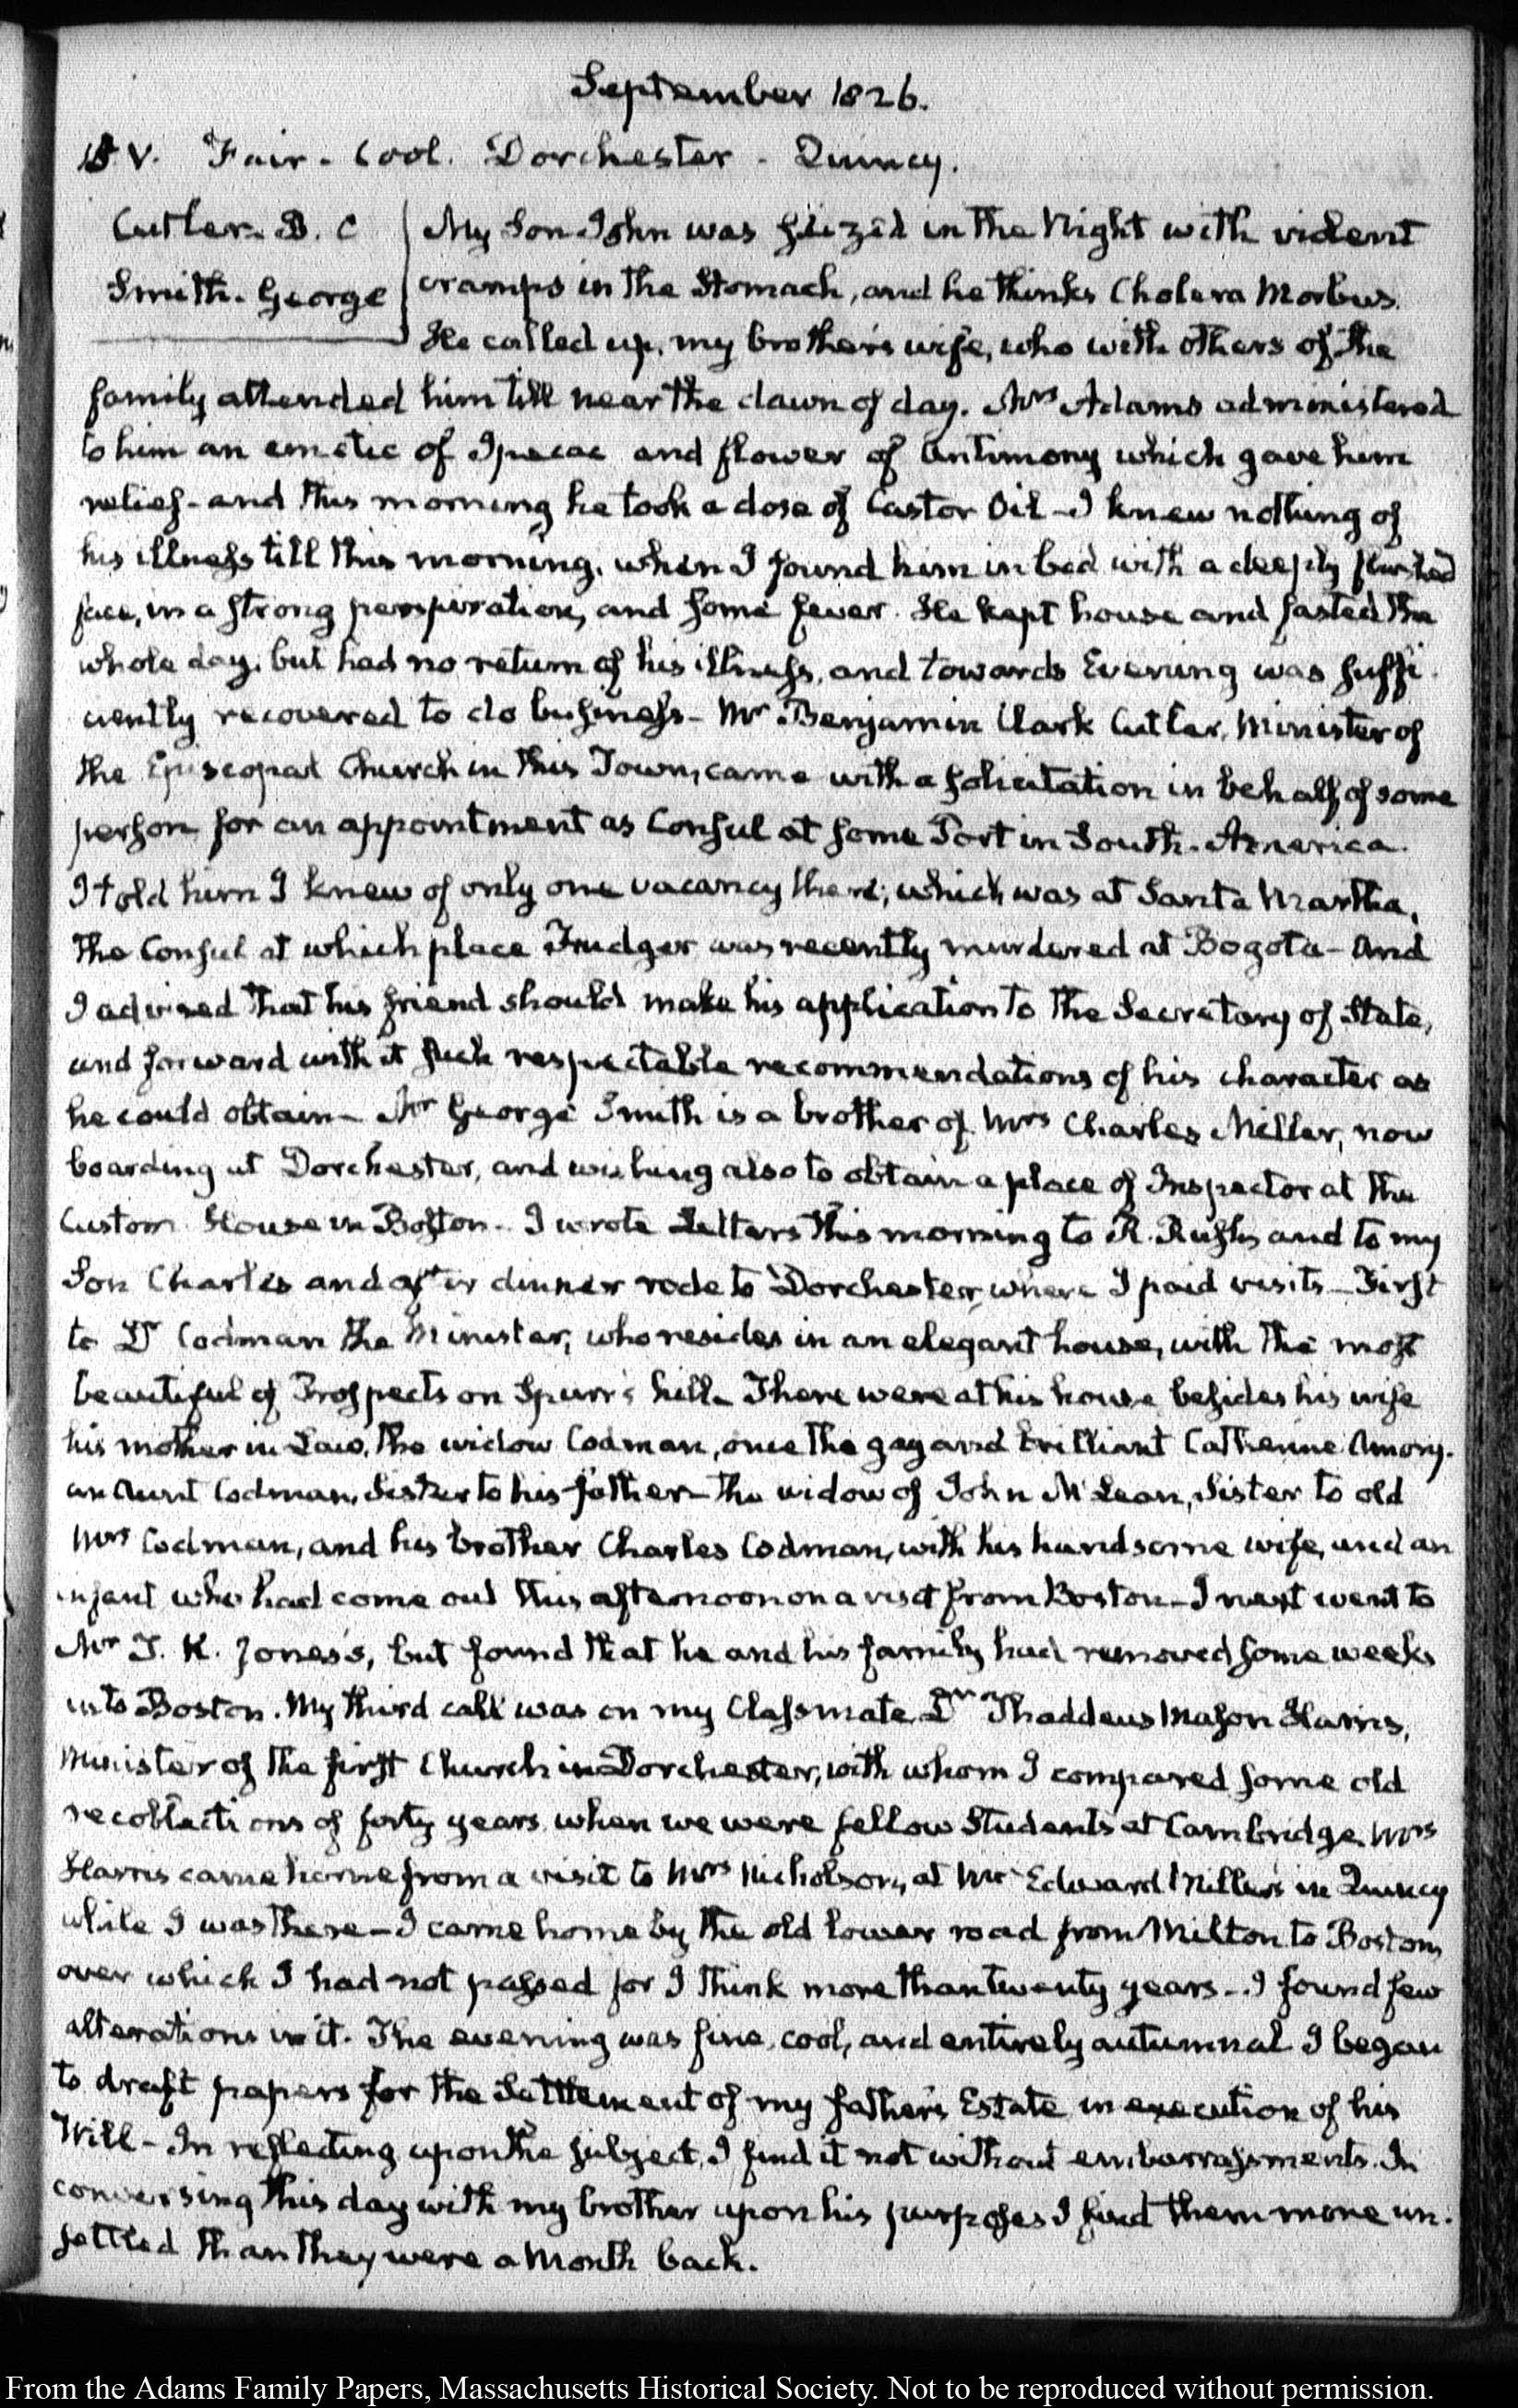 September 1826.
V. Fair - Cool. Dorchester - Quincy.
Cutler. B. C
Smith. George
My Son John was seized in the Night with violent
cramps in the Stomach, and he thinks Cholera Morbus.
He called up, my brother's wife, who with others of the
family attended him till near the dawn of day. Mrs Adams administered
to him an emetic of Ipecac and flower of Antimony which gave him
relief - and this morning he took a dose of Castor Oil - I knew nothing of
his illness till this morning, when I found him in bed with a deeply flushed
face, in a strong perspiration, and some fever. He kept house and fasted the
whole day, but had no return of his illness, and towards Evening was suffi-
ciently recovered to do business - Mr Benjamin Clark Cutler, Minister of
the Episcopal Church in this Town, came with a solicitation in behalf of some
person for an appointment as Consul at some Port in South-America.
I told him I knew of only one vacancy there; which was at Santa Martha,
the Consul at which place Trudger was recently murdered at Bogota - And
I advised that his friend should make his application to the Secretary of State,
and forward with it such respectable recommendations of his character as
he could obtain - Mr George Smith is a brother of Mrs Charles Miller, now
boarding at Dorchester, and wishing also to obtain a place of Inspector at the
Custom House in Boston - I wrote Letters this morning to R. Rush, and to my
Son Charles and after dinner rode to Dorchester, where I paid visits - First
to Dr Codman the Minister, who resides in an elegant house, with the most
beautiful of Prospects on Spurr's hill - There were at his house besides his wife
his mother in Law, the widow Codman, once the gay and brilliant Catherine Amory.
an Aunt Codman, Sister to his father - the widow of John McLean, Sister to old
Mrs Codman, and his brother Charles Codman, with his handsome wife, and an
infant who had come out this afternoon on a visit from Boston - I next went to
Mr T. K. Jones's, but found that he and his family had removed some weeks
into Boston. My third call was on my Classmate Dr Thaddeus Mason Harris,
Minister of the first Church in Dorchester, with whom I compared some old
recollections of forty years when we were fellow Students at Cambridge. Mrs
Harris came home from a visit to Mrs Nicholson, at Mr Edward Miller's in Quincy
while I was there - I came home by the old lower road from Milton to Boston,
over which I had not passed for I think more than twenty years - I found few
alterations in it. The evening was fine, cool, and entirely autumnal I began
to draft papers for the Settlement of my father's Estate in execution of his
Will - In reflecting upon the subject, I find it not without embarrassments. In
conversing this day with my brother upon his purposes I find them more un-
settled than they were a Month back.
From the Adams Family Papers, Massachusetts Historical Society. Not to be reproduced without permission.